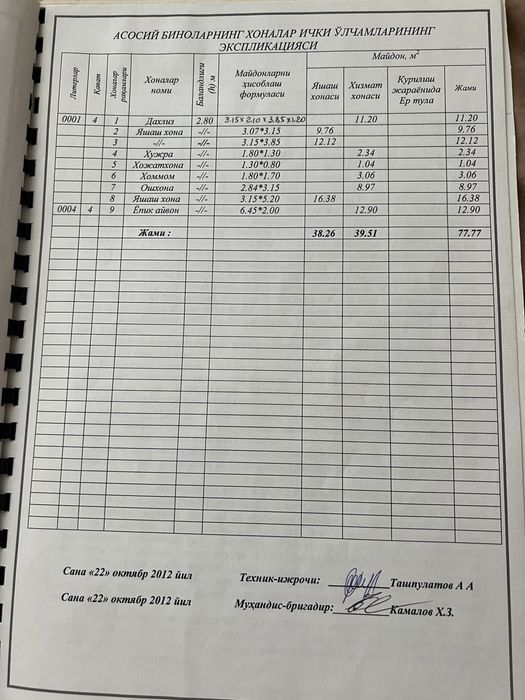 АСОСИЙ БИНОЛАРНИНГ ХОНАЛАР ИЧКИ ЎЛЧАМЛАРИНИНГ
ЭКСПЛИКАЦИЯСИ
Литерлар Қават Хоналар рақамлари Хоналар номи Баландлиги (h) м Майдонларни ҳисоблаш формуласи Майдон, м²
Яшаш хонаси Хизмат хонаси Қурилиш жараёнида Ер тула Жами
0001 4 1 Дахлиз 2.80 3.15*2.10+3.85*1.20 11.20 11.20
2 Яшаш хона -//- 3.07*3.15 9.76 9.76
3 -//- -//- 3.15*3.85 12.12 12.12
4 Хужра -//- 1.80*1.30 2.34 2.34
5 Хожатхона -//- 1.30*0.80 1.04 1.04
6 Хоммом -//- 1.80*1.70 3.06 3.06
7 Ошхона -//- 2.84*3.15 8.97 8.97
8 Яшаш хона -//- 3.15*5.20 16.38 16.38
0004 4 9 Ёпик айвон -//- 6.45*2.00 12.90 12.90
Жами : 38.26 39.51 77.77
Сана «22» октябр 2012 йил Техник-ижрочи: Ташпулатов А А
Сана «22» октябр 2012 йил Муҳандис-бригадир: Камалов Х.З.